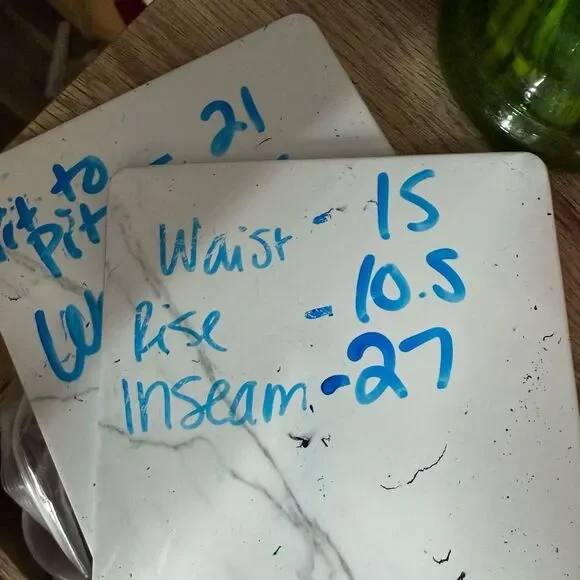 Pit to - 21
Pit
Waist - 15
Rise - 10.5
Inseam - 27